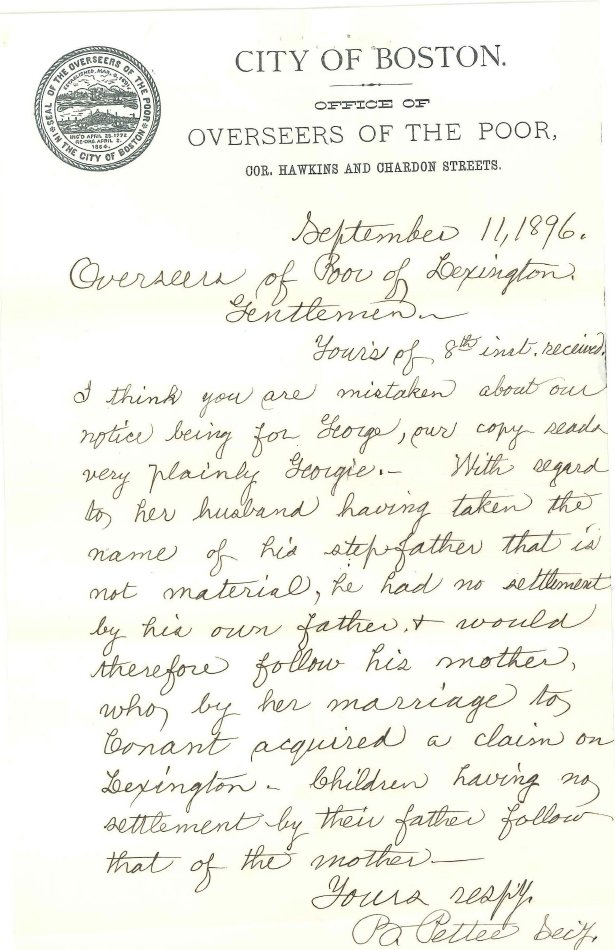 SEAL OF THE OVERSEERS OF THE POOR
IN THE CITY OF BOSTON
INC'D APRIL 25. 1772
RE-ORG. APRIL 2.
1864.
CITY OF BOSTON.
OFFICE OF
OVERSEERS OF THE POOR,
COR. HAWKINS AND CHARDON STREETS.
September 11, 1896.
Overseers of Poor of Lexington.
Gentlemen.
Yours of 8th inst. received.
I think you are mistaken about our
notice being for George, our copy reads
very plainly Georgie. — With regard
to her husband having taken the
name of his stepfather that is
not material, he had no settlement
by his own father, & would
therefore follow his mother,
who, by her marriage to
Conant acquired a claim on
Lexington - Children having no
settlement by their father follow
that of the mother —
Yours respy.
Pettee Secy.